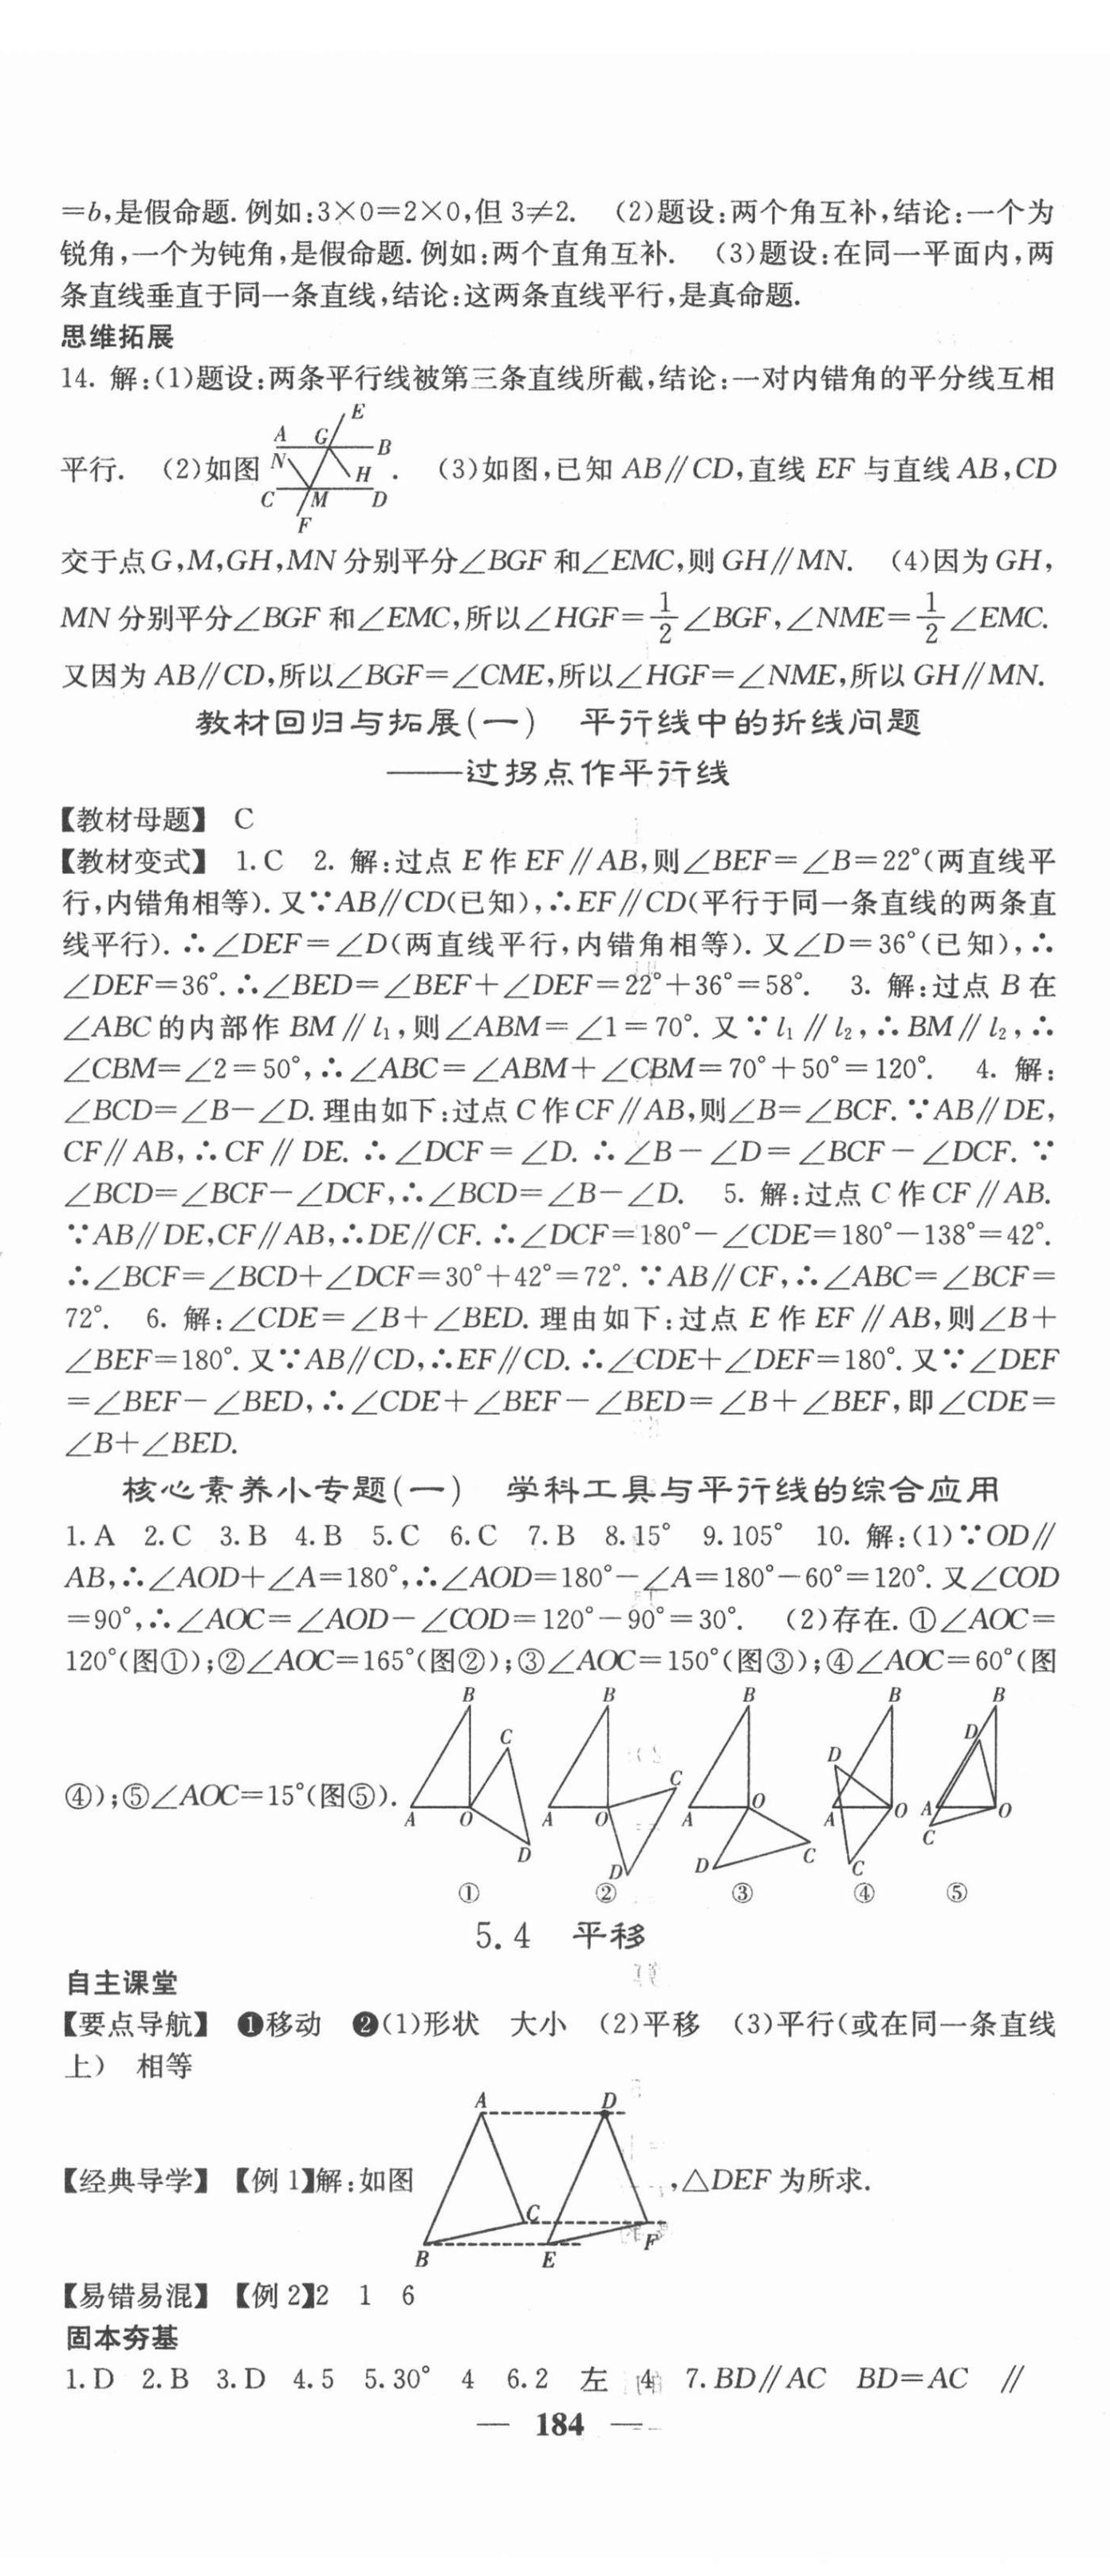 =b,是假命题.例如:3×0=2×0,但3≠2. (2)题设:两个角互补,结论:一个为
锐角,一个为钝角,是假命题.例如:两个直角互补. (3)题设:在同一平面内,两
条直线垂直于同一条直线,结论:这两条直线平行,是真命题.
思维拓展
14. 解:(1)题设:两条平行线被第三条直线所截,结论:一对内错角的平分线互相
E
A G B
N H
C M D
F
平行. (2)如图 . (3)如图,已知 AB∥CD,直线 EF 与直线 AB,CD
交于点G,M,GH,MN 分别平分∠BGF 和∠EMC,则 GH∥MN. (4)因为GH,
MN 分别平分∠BGF 和∠EMC,所以∠HGF=1/2∠BGF,∠NME=1/2∠EMC.
又因为 AB∥CD,所以∠BGF=∠CME,所以∠HGF=∠NME,所以 GH∥MN.
教材回归与拓展(一) 平行线中的折线问题
——过拐点作平行线
【教材母题】 C
【教材变式】 1.C 2. 解:过点 E 作 EF∥AB,则∠BEF=∠B=22°(两直线平
行,内错角相等).又∵AB∥CD(已知),∴EF∥CD(平行于同一条直线的两条直
线平行).∴∠DEF=∠D(两直线平行,内错角相等).又∠D=36°(已知),∴
∠DEF=36°.∴∠BED=∠BEF+∠DEF=22°+36°=58°. 3. 解:过点 B 在
∠ABC 的内部作 BM∥l₁,则∠ABM=∠1=70°.又∵l₁∥l₂,∴BM∥l₂,∴
∠CBM=∠2=50°,∴∠ABC=∠ABM+∠CBM=70°+50°=120°. 4. 解:
∠BCD=∠B-∠D.理由如下:过点 C 作 CF∥AB,则∠B=∠BCF.∵AB∥DE,
CF∥AB,∴CF∥DE.∴∠DCF=∠D.∴∠B-∠D=∠BCF-∠DCF.∵
∠BCD=∠BCF-∠DCF,∴∠BCD=∠B-∠D. 5. 解:过点 C 作 CF∥AB.
∵AB∥DE,CF∥AB,∴DE∥CF.∴∠DCF=180°-∠CDE=180°-138°=42°.
∴∠BCF=∠BCD+∠DCF=30°+42°=72°.∵AB∥CF,∴∠ABC=∠BCF=
72°. 6. 解:∠CDE=∠B+∠BED.理由如下:过点 E 作 EF∥AB,则∠B+
∠BEF=180°.又∵AB∥CD,∴EF∥CD.∴∠CDE+∠DEF=180°.又∵∠DEF
=∠BEF-∠BED,∴∠CDE+∠BEF-∠BED=∠B+∠BEF,即∠CDE=
∠B+∠BED.
核心素养小专题(一) 学科工具与平行线的综合应用
1.A 2.C 3.B 4.B 5.C 6.C 7.B 8.15° 9.105° 10. 解:(1)∵OD∥
AB,∴∠AOD+∠A=180°,∴∠AOD=180°-∠A=180°-60°=120°.又∠COD
=90°,∴∠AOC=∠AOD-∠COD=120°-90°=30°. (2)存在.①∠AOC=
120°(图①);②∠AOC=165°(图②);③∠AOC=150°(图③);④∠AOC=60°(图
④);⑤∠AOC=15°(图⑤).
B C A O D
B C A O D
B A O D C
B D A O C
B D A O C
① ② ③ ④ ⑤
5.4 平移
自主课堂
【要点导航】 ❶移动 ❷(1)形状 大小 (2)平移 (3)平行(或在同一条直线
上) 相等
A D
【经典导学】【例1】解:如图 ,△DEF 为所求.
C F
B E
【易错易混】【例2】2 1 6
固本夯基
1.D 2.B 3.D 4.5 5.30° 4 6.2 左 4 7.BD∥AC BD=AC ∥
— 184 —